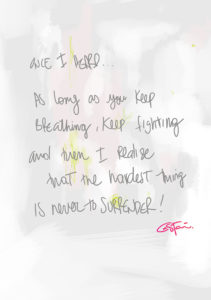 ONCE I HEARD...
As long as you keep
Breathing, keep fighting
and then I realise
that the hardest thing
IS never to SURRENDER!